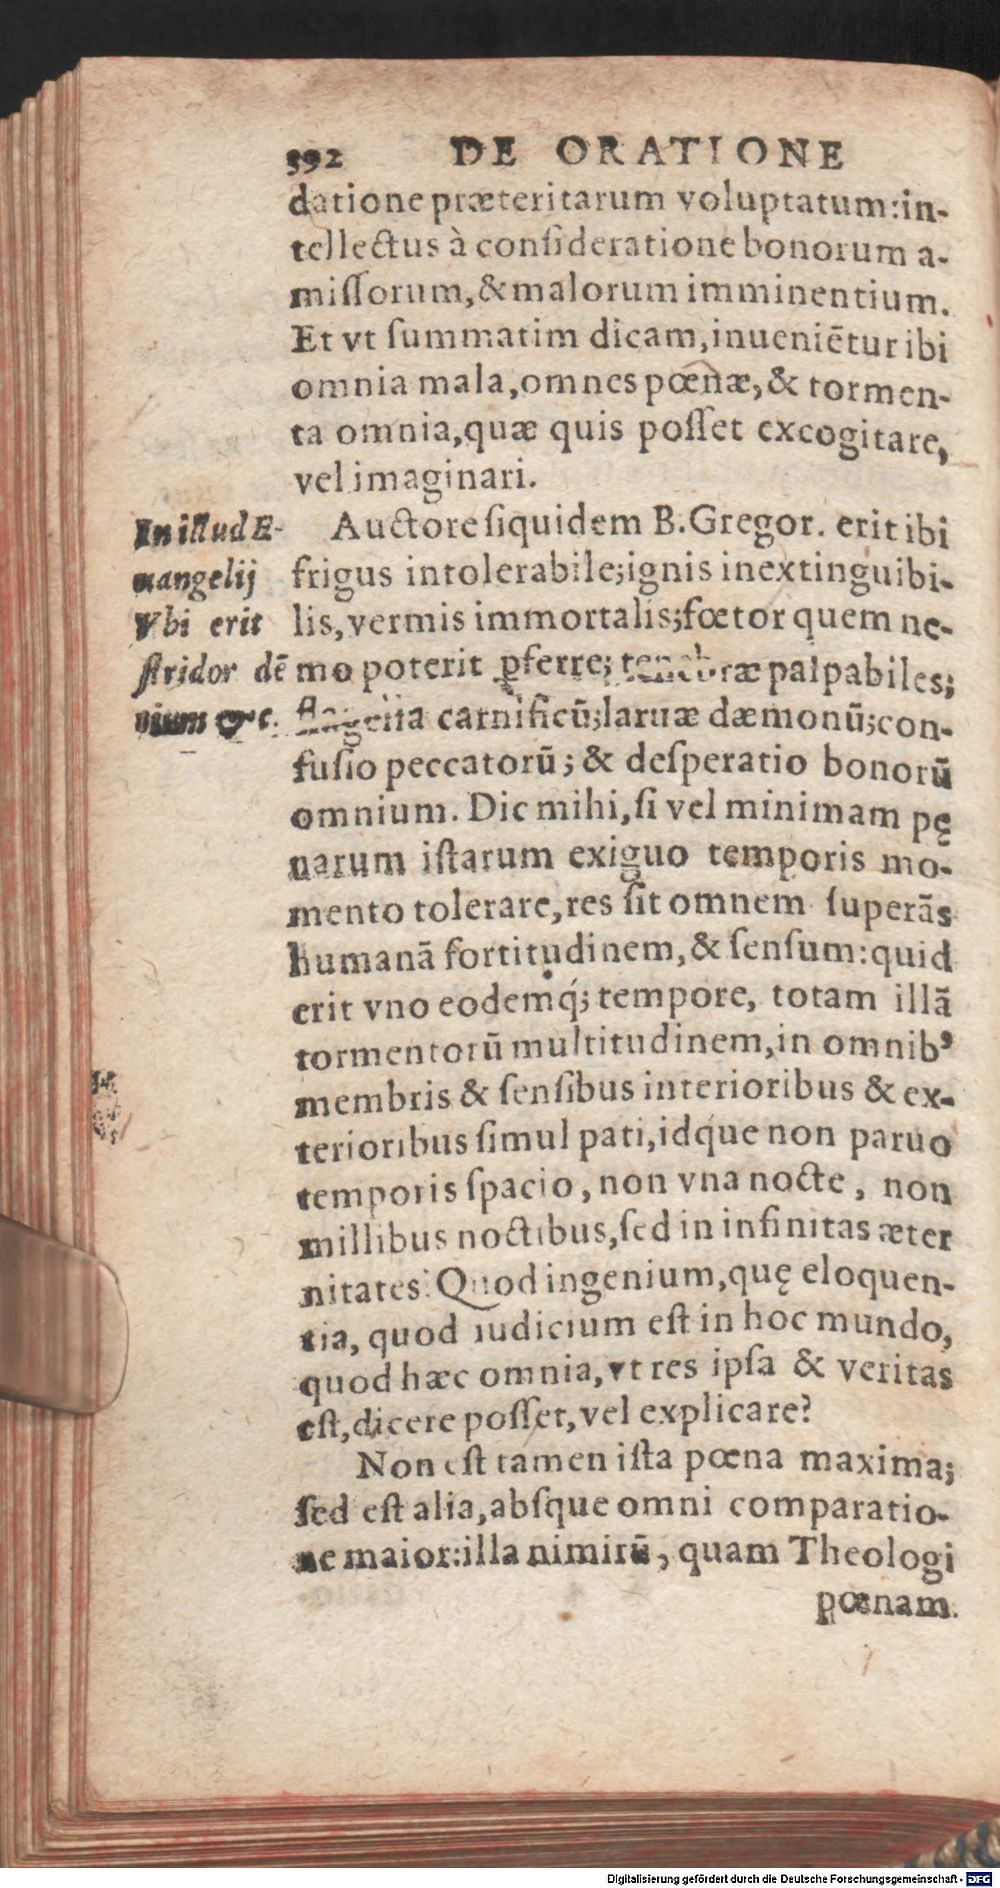 392 DE ORATIONE
datione præteritarum voluptatum:in-
tellectus à conſideratione bonorum a-
miſſorum,&malorum imminentium.
Et vt ſummatim dicam,inueniētur ibi
omnia mala,omnes pœnæ,& tormen-
ta omnia,quæ quis poſſet excogitare,
vel imaginari.
In illud E-
uangelij
Vbi erit
ſtridor dē
tium &c.
Auctore ſiquidem B.Gregor. erit ibi
frigus intolerabile;ignis inextinguibi-
lis,vermis immortalis;fœtor quem ne-
mo poterit ꝑferre; tenebræ palpabiles;
flagella carnificū;laruæ dæmonū;con-
fuſio peccatorū; & deſperatio bonorū
omnium. Dic mihi,ſi vel minimam pę
narum iſtarum exiguo temporis mo-
mento tolerare,res ſit omnem ſuperās
humanā fortitudinem,& ſenſum:quid
erit vno eodemq́; tempore, totam illā
tormentorū multitudinem,in omnibꝰ
membris & ſenſibus interioribus & ex-
terioribus ſimul pati,idque non paruo
temporis ſpacio, non vna nocte, non
millibus noctibus,ſed in infinitas æter
nitates? Quod ingenium,quę eloquen-
tia, quod iudicium eſt in hoc mundo,
quod hæc omnia,vt res ipſa & veritas
eſt,dicere poſſet,vel explicare?
Non eſt tamen iſta pœna maxima;
ſed eſt alia,abſque omni comparatio-
ne maior:illa nimirū, quam Theologi
pœnam
Digitalisierung gefördert durch die Deutsche Forschungsgemeinschaft - DFG